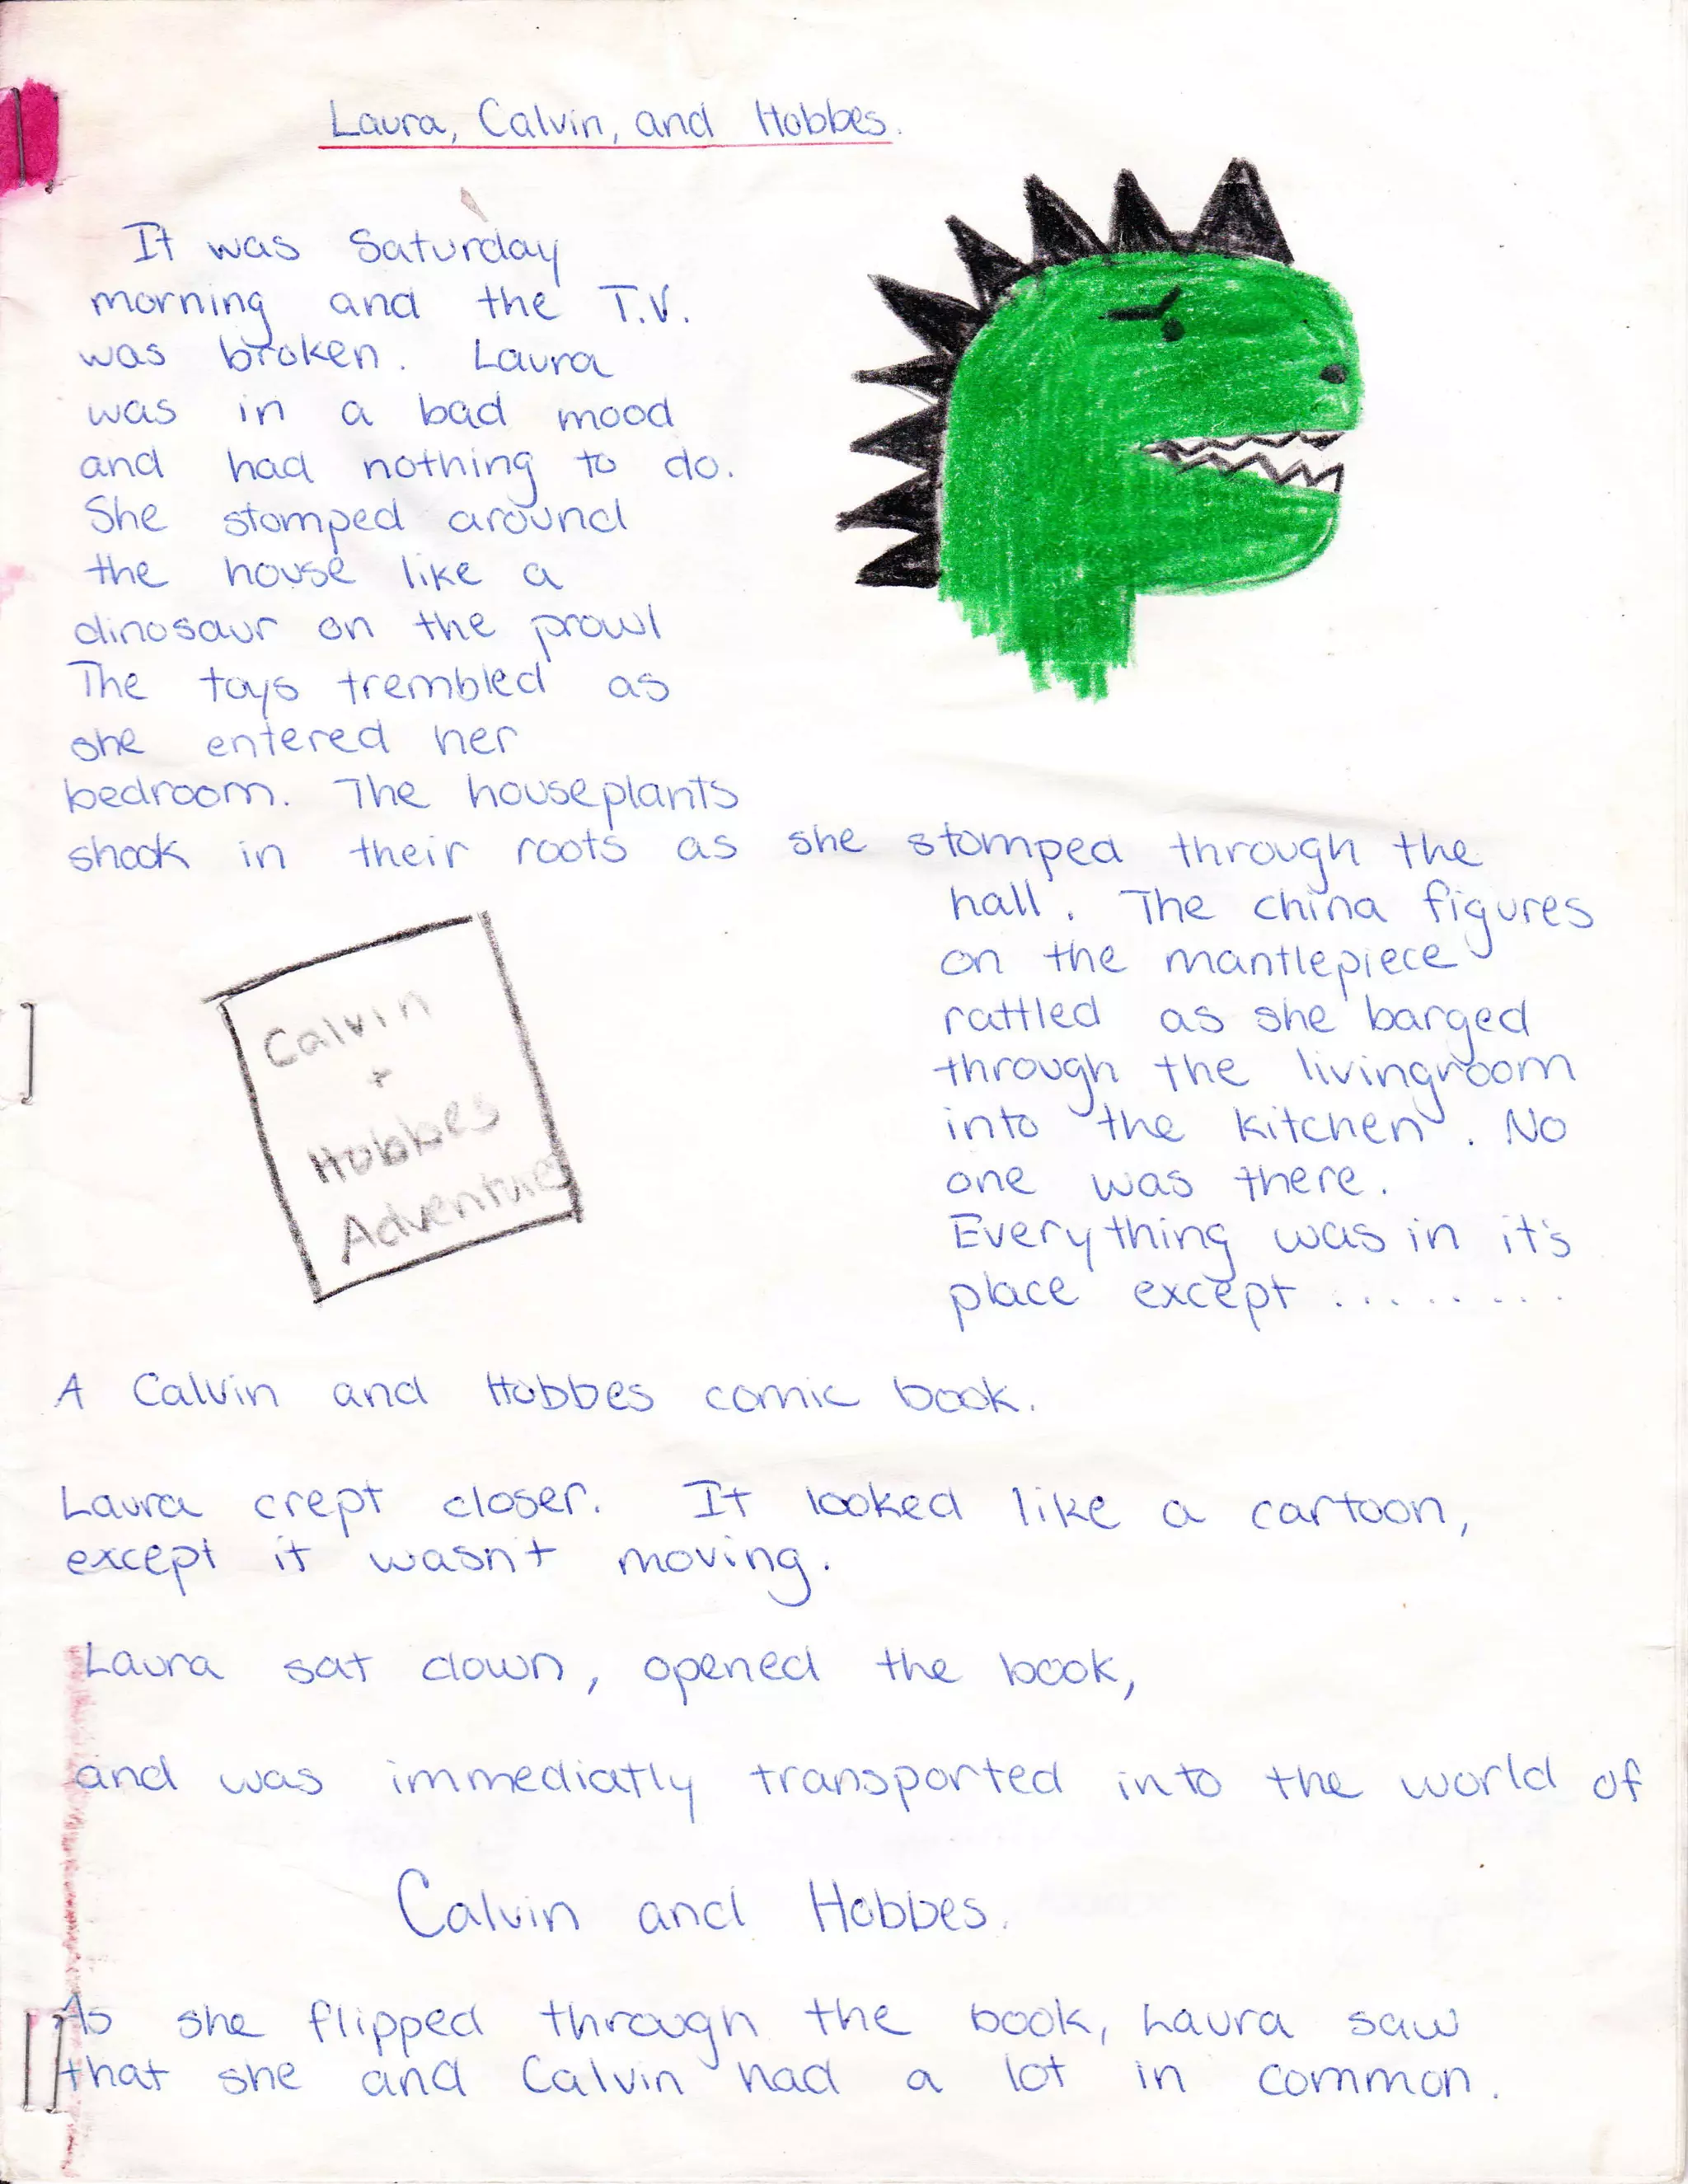 Laura, Calvin, and Hobbes.
It was Saturday
morning and the T.V.
was broken. Laura
was in a bad mood
and had nothing to do.
She stomped around
the house like a
dinosaur on the prowl
The toys trembled as
she entered her
bedroom. The houseplants
shook in their roots as she stomped through the
hall. The china figures
on the mantlepiece
rattled as she barged
through the livingroom
into the kitchen. No
one was there.
Everything was in it's
place except .........
Calvin
+
Hobbes
Adventures
A Calvin and Hobbes comic book.
Laura crept closer. It looked like a cartoon,
except it wasn't moving.
Laura sat down, opened the book,
and was immediatly transported into the world of
Calvin and Hobbes.
As she flipped through the book, Laura saw
that she and Calvin had a lot in common.